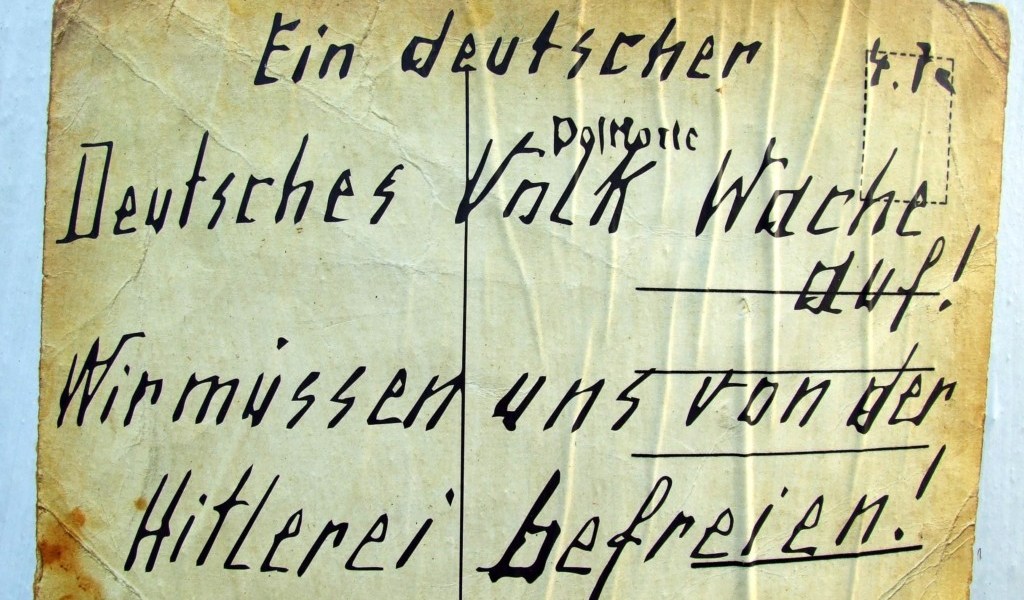 Ein deutscher
4.7
Postkarte
Deutsches Volk Wache
auf!
Wir müssen uns von der
Hitlerei befreien!